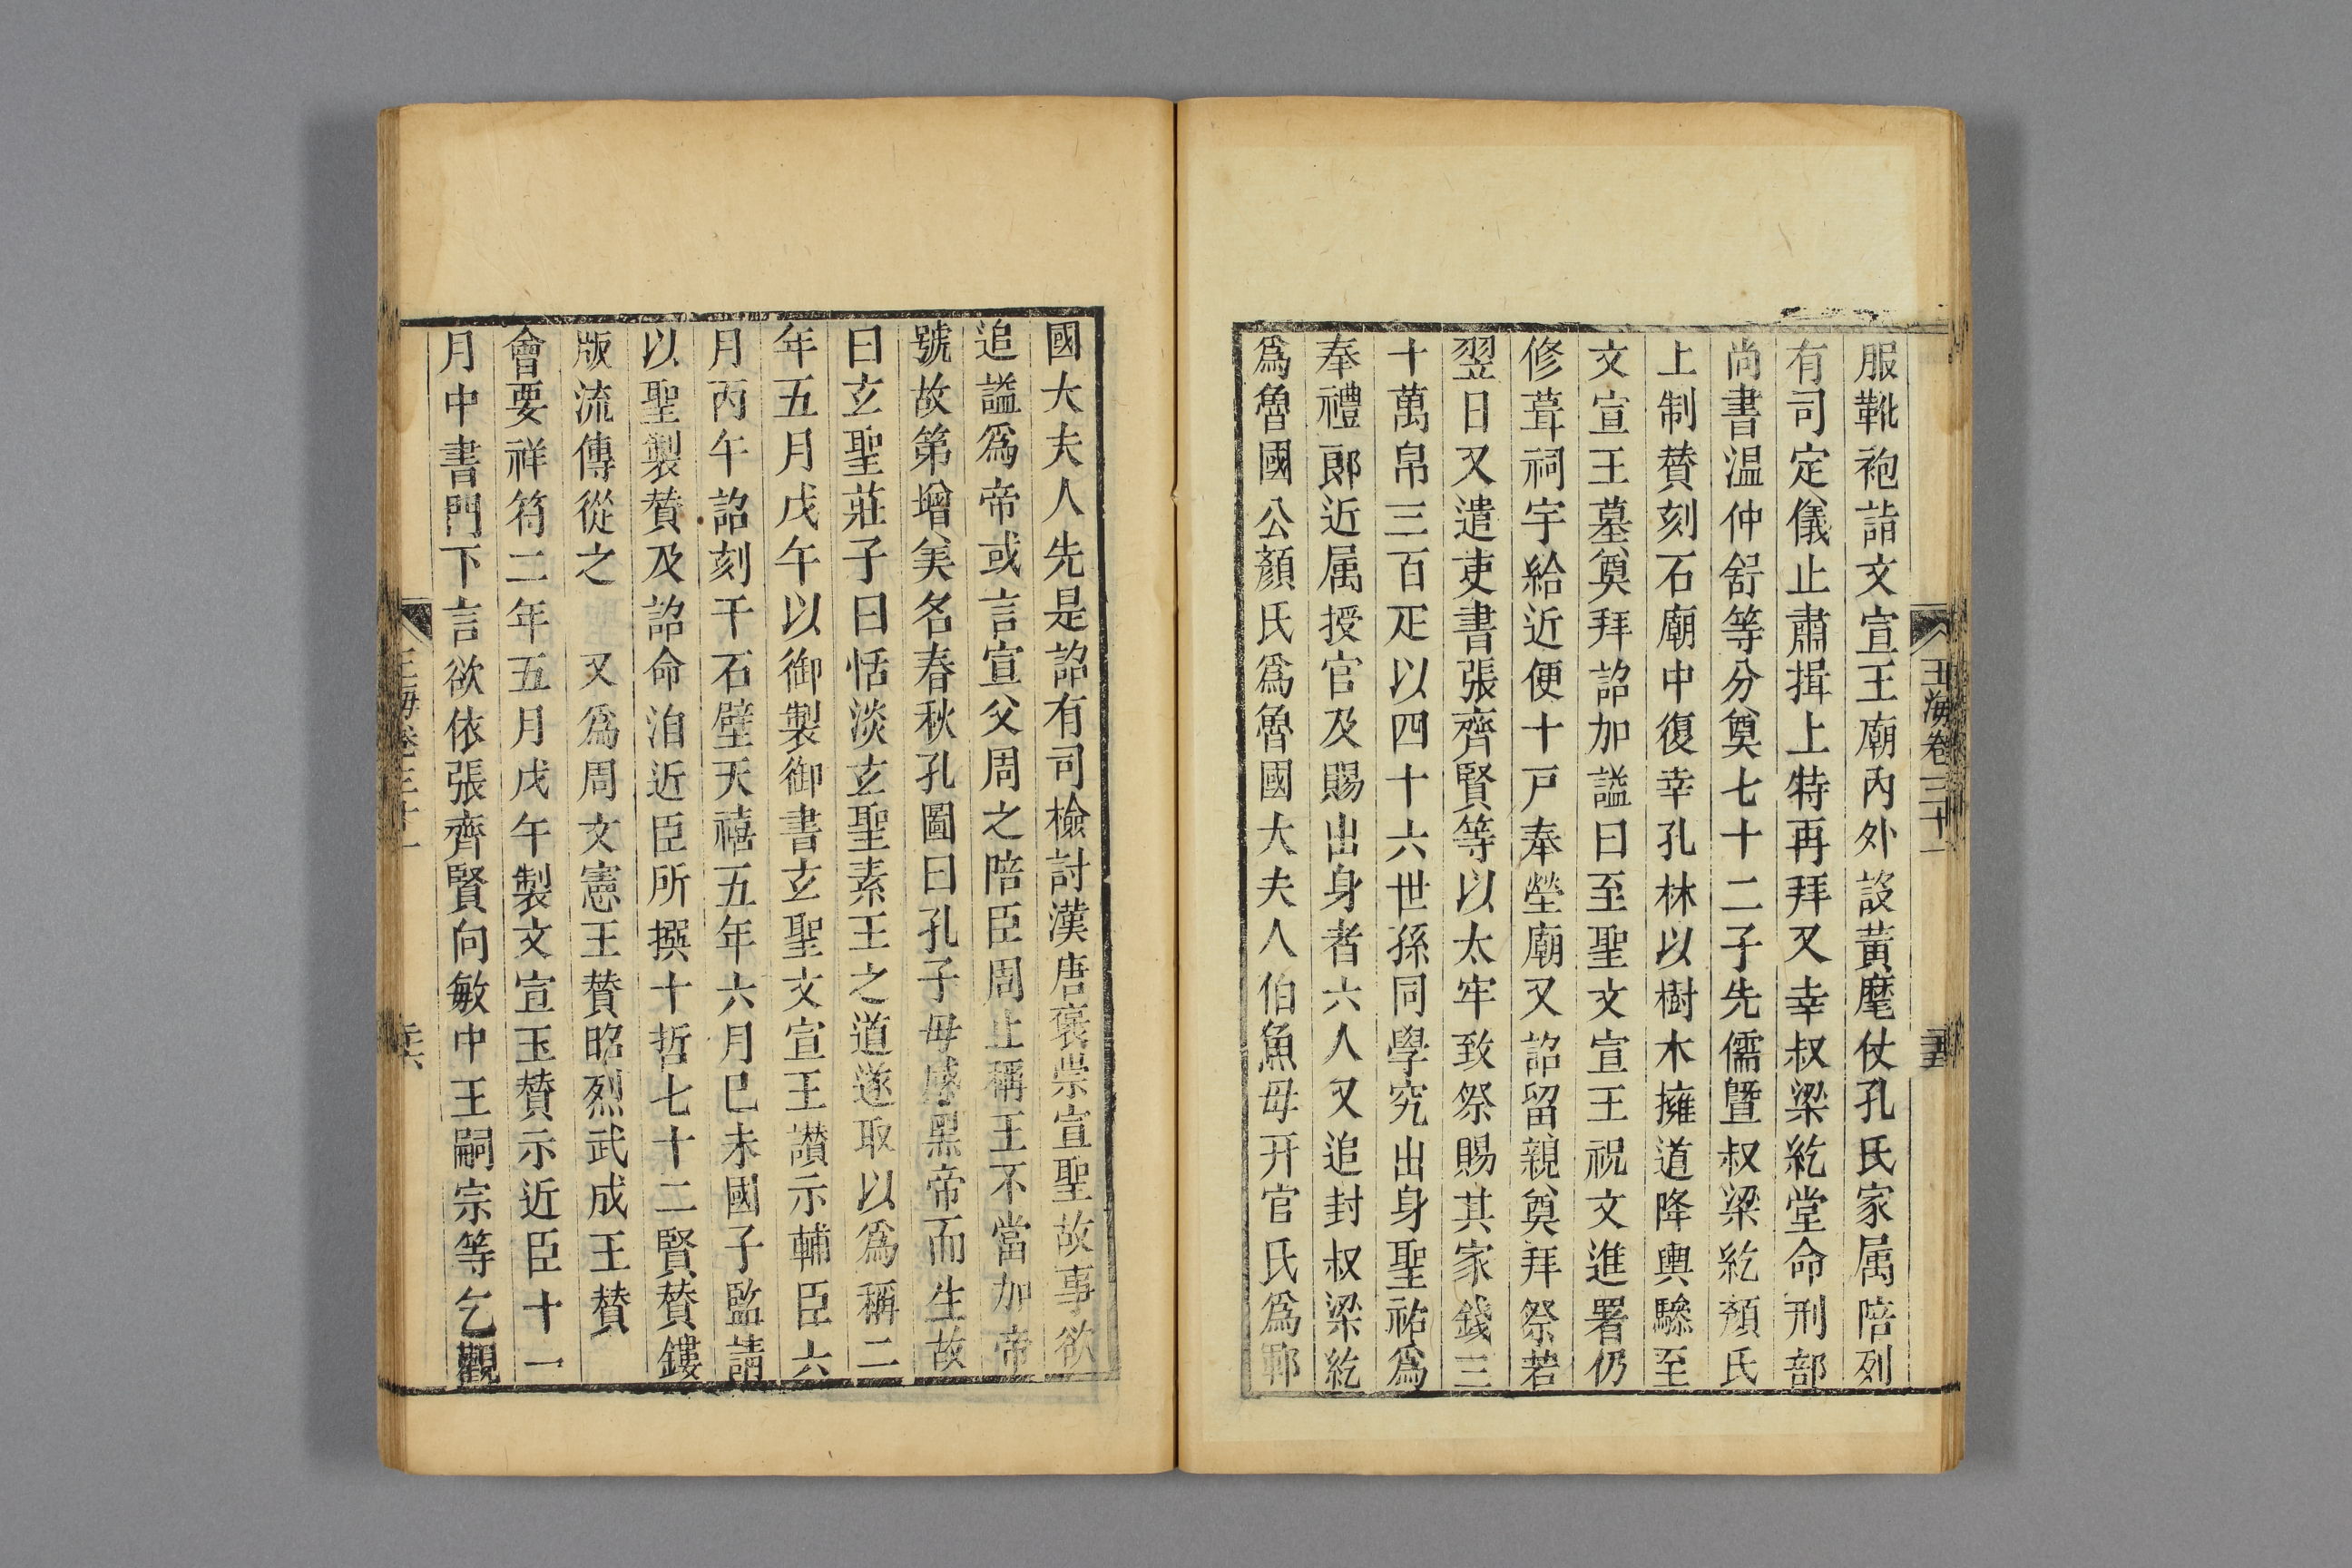 玉海卷三十一
服靴袍詣文宣王廟內外設黃麾仗孔氏家属陪列
有司定儀止肅揖上特再拜又幸叔梁紇堂命刑部
尚書温仲舒等分奠七十二子先儒曁叔梁紇顏氏
上制賛刻石廟中復幸孔林以樹木擁道降輿驂至
文宣王墓奠拜詔加諡曰至聖文宣王祝文進署仍
修葺祠宇給近便十戸奉塋廟又詔留親奠拜祭若
翌日又遣吏書張齊賢等以太牢致祭賜其家錢三
十萬帛三百疋以四十六世孫同學究出身聖祐爲
奉禮郎近属授官及賜出身者六人又追封叔梁紇
爲魯國公顏氏爲魯國大夫人伯魚母幵官氏爲鄆
國大夫人先是詔有司檢討漢唐褒崇宣聖故事欲
追諡爲帝或言宣父周之陪臣周止稱王不當加帝
號故第增美名春秋孔圖曰孔子母感黑帝而生故
曰玄聖莊子曰恬淡玄聖素王之道遂取以爲稱二
年五月戊午以御製御書玄聖文宣王讃示輔臣六
月丙午詔刻于石壁天禧五年六月巳未國子監請
以聖製賛及詔命洎近臣所撰十哲七十二賢賛鏤
版流傳從之 又爲周文憲王賛昭烈武成王賛
會要祥符二年五月戊午製文宣玉賛示近臣十一
月中書門下言欲依張齊賢向敏中王嗣宗等乞觀
玉海卷三十一